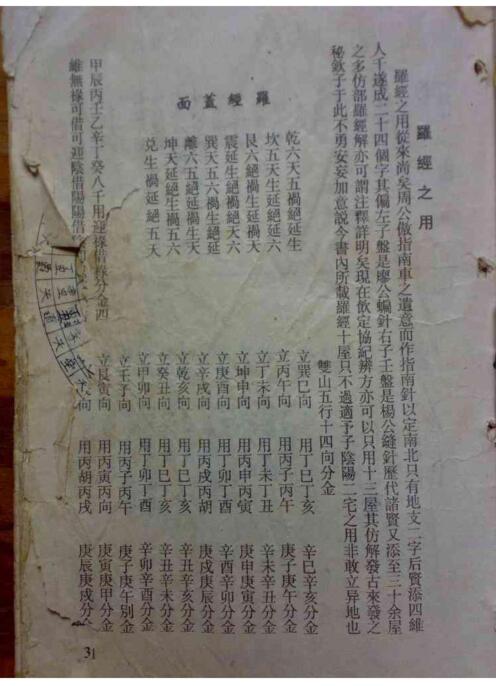 羅經之用
羅經之用從來尚矣周公倣指南車之遺意而作指南針以定南北只有地支二字后賢添四維
人千遂成二十四個字其偏左子盤是廖公蝙針右子壬盤是楊公縫針歷代諸賢又添至三十余屋
之多仿部羅經解亦可謂注釋詳明矣現在飲定協紀辨方亦可以只用十三屋其仿解發古來發之
秘欽子于此不勇安妄加意説今書內所載羅經十屋只不過適予子陰陽二宅之用非敢立异地也
羅經蓋面
乾六天五禍絕延生
坎五天生延絕延六
艮六絕禍生延禍天
震延生禍絕絕天六
巽天五六禍生絕延
離六五絕延禍生天
坤天延絕生禍五六
兌生禍延絕五大
甲辰丙子乙辛丁癸八千用迎祿借祿分金四
維無祿可借可迎陰借陽陽借
雙山五行十四向分金
立巽巳向 用丁巳丁亥 辛巳辛亥分金
立丙午向 用丙子丙午 庚子庚午分金
立丁未向 用丁未丁丑 辛未辛丑分金
立坤申向 用丙申丙寅 庚申庚寅分金
立庚酉向 用丁卯丁酉 辛酉辛卯分金
立辛戌向 用丙戌丙胡 庚戌庚辰分金
立乾亥向 用丁巳丁亥 辛丑辛亥分金
立癸丑向 用丁巳丁亥 辛丑辛未分金
立甲卯向 用丁卯丁酉 辛卯辛酉分金
立壬子向 用丙子丙午 庚子庚午別金
立艮寅向 用丙寅丙向 庚寅庚甲分金
用丙胡丙戌 庚辰庚戌分金
31